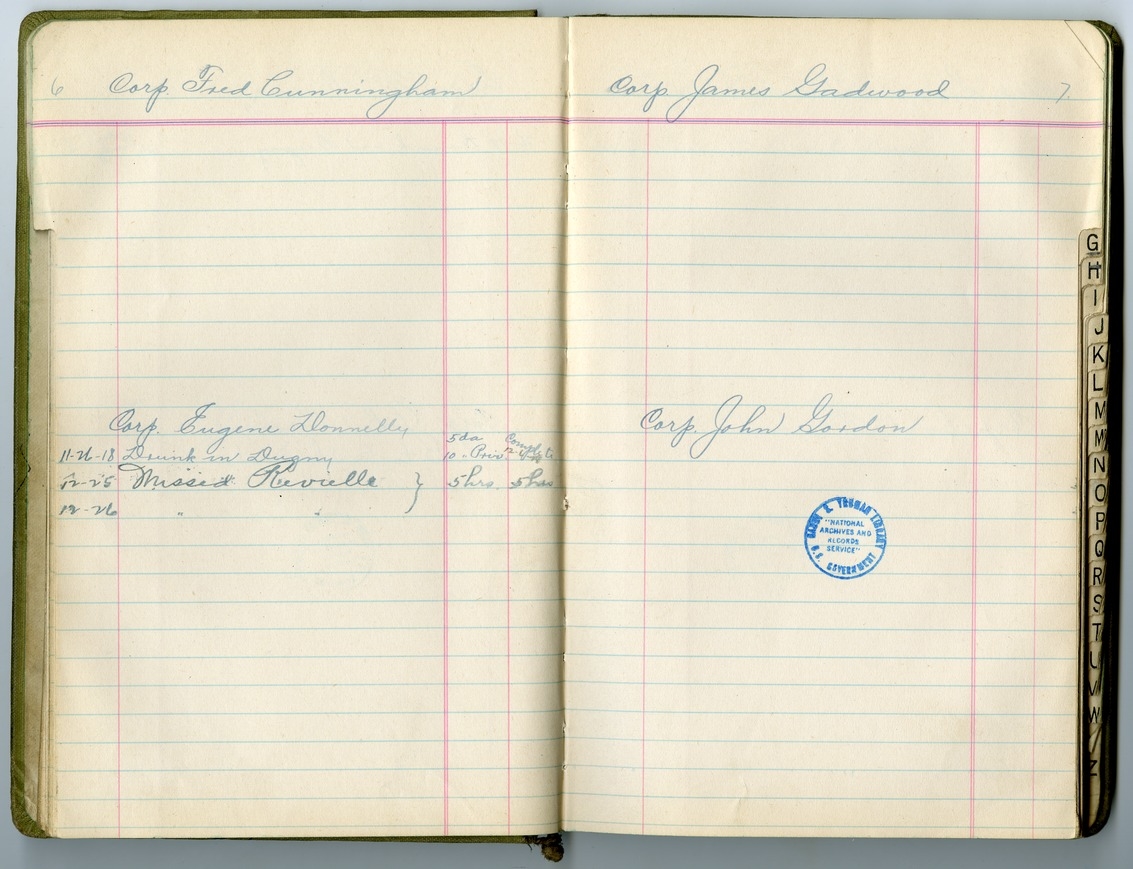 6 Corp. Fred Cunningham
Corp. Eugene Donnelly
11-26-18 Drunk in Dugny 5 da
10 " Priv
12-25 Missed Revielle } 5 hrs. 5 hrs
12-26 " "
Corp. James Gadwood 7.
Corp. John Gordon
HARRY S. TRUMAN LIBRARY
"NATIONAL
ARCHIVES AND
RECORDS
SERVICE"
U.S. GOVERNMENT
G
H
I
J
K
L
M
M
N
O
P
Q
R
S
T
U
V
W
Z